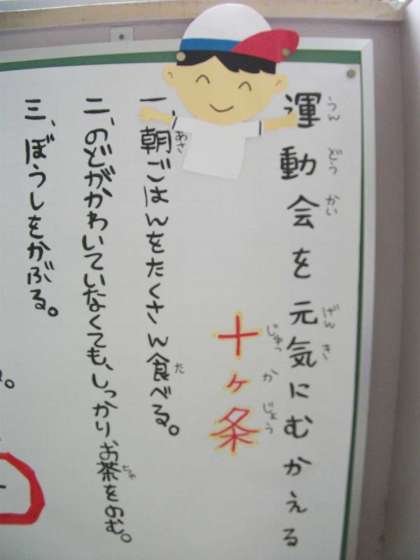 運動会を元気にむかえる
十ヶ条
一、朝ごはんをたくさん食べる。
二、のどがかわいていなくても、しっかりお茶をのむ。
三、ぼうしをかぶる。